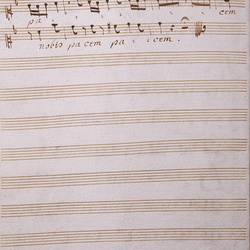 pa - - - cem
nobis pacem pa - cem.